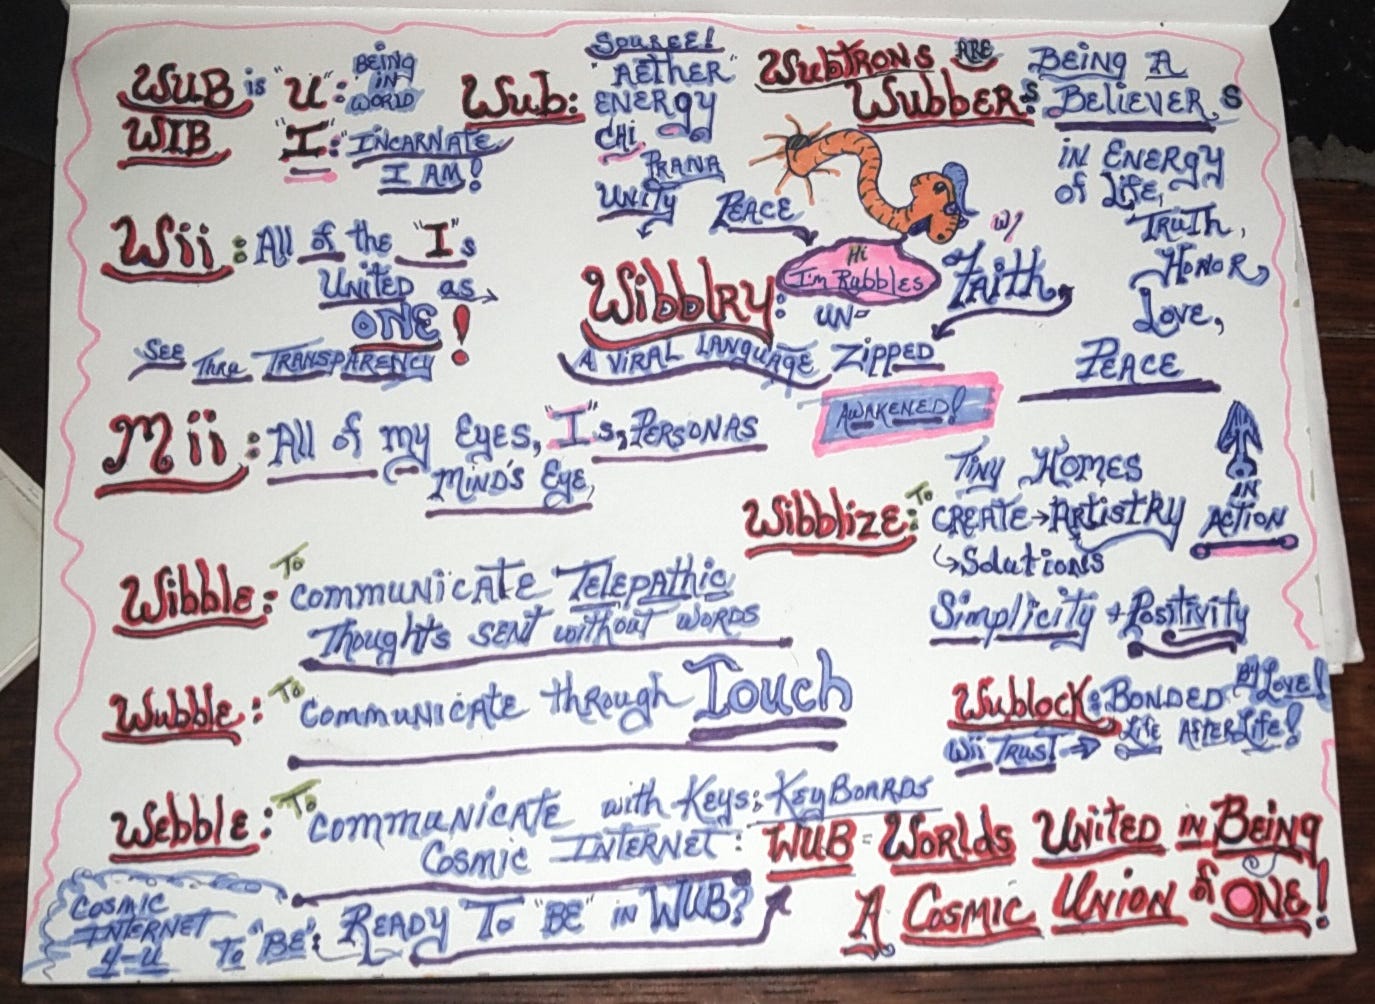 WUB is "U": BEING IN WORLD
WIB "I": INCARNATE
I AM!
Wub: SOURCE!
"AETHER"
ENERGY
CHi
PRANA
UNITY PEACE
WubTRONS ARE BEING A
WubbERS: BELIEVERS
iN ENERGY
of Life,
TRuTH,
HONOR,
Love,
PEACE
Wii: All of the "I"s
UNITED as
ONE!
SEE Thru TRANSPARENCY
Hi
I'm Rubbles
w/
FAITH
Wibblry: UN-
A VIRAL LANGUAGE ZIPPED
AWAKENED!
Mii: All of my EyES, "I"s, PERSONAS
MIND'S EyE,
Wibblize: To Tiny HOMES
CREATE→ARTiSTRY IN ACTION
↳Solutions
Simplicity + Positivity
Wibble: To COMMUNICATE TELEPAThic
ThoughTs SENT without WORDS
Wubble: To COMMUNICATE through Touch
Wublock: BONDED By LOVE!
Wii TRUST → Life AFTER Life!
Webble: To COMMUNICATE with KEyS: KEyBOARDS
COSMIC INTERNET:
WUB = WORLDS UNITED IN BEING
A COSMIC UNION of ONE!
COSMIC
INTERNET
4-U
To "BE": READy To "BE" iN WUB?